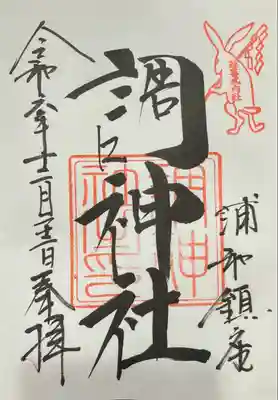 浦和鎮座
調神社
令和六年十二月 日奉拝